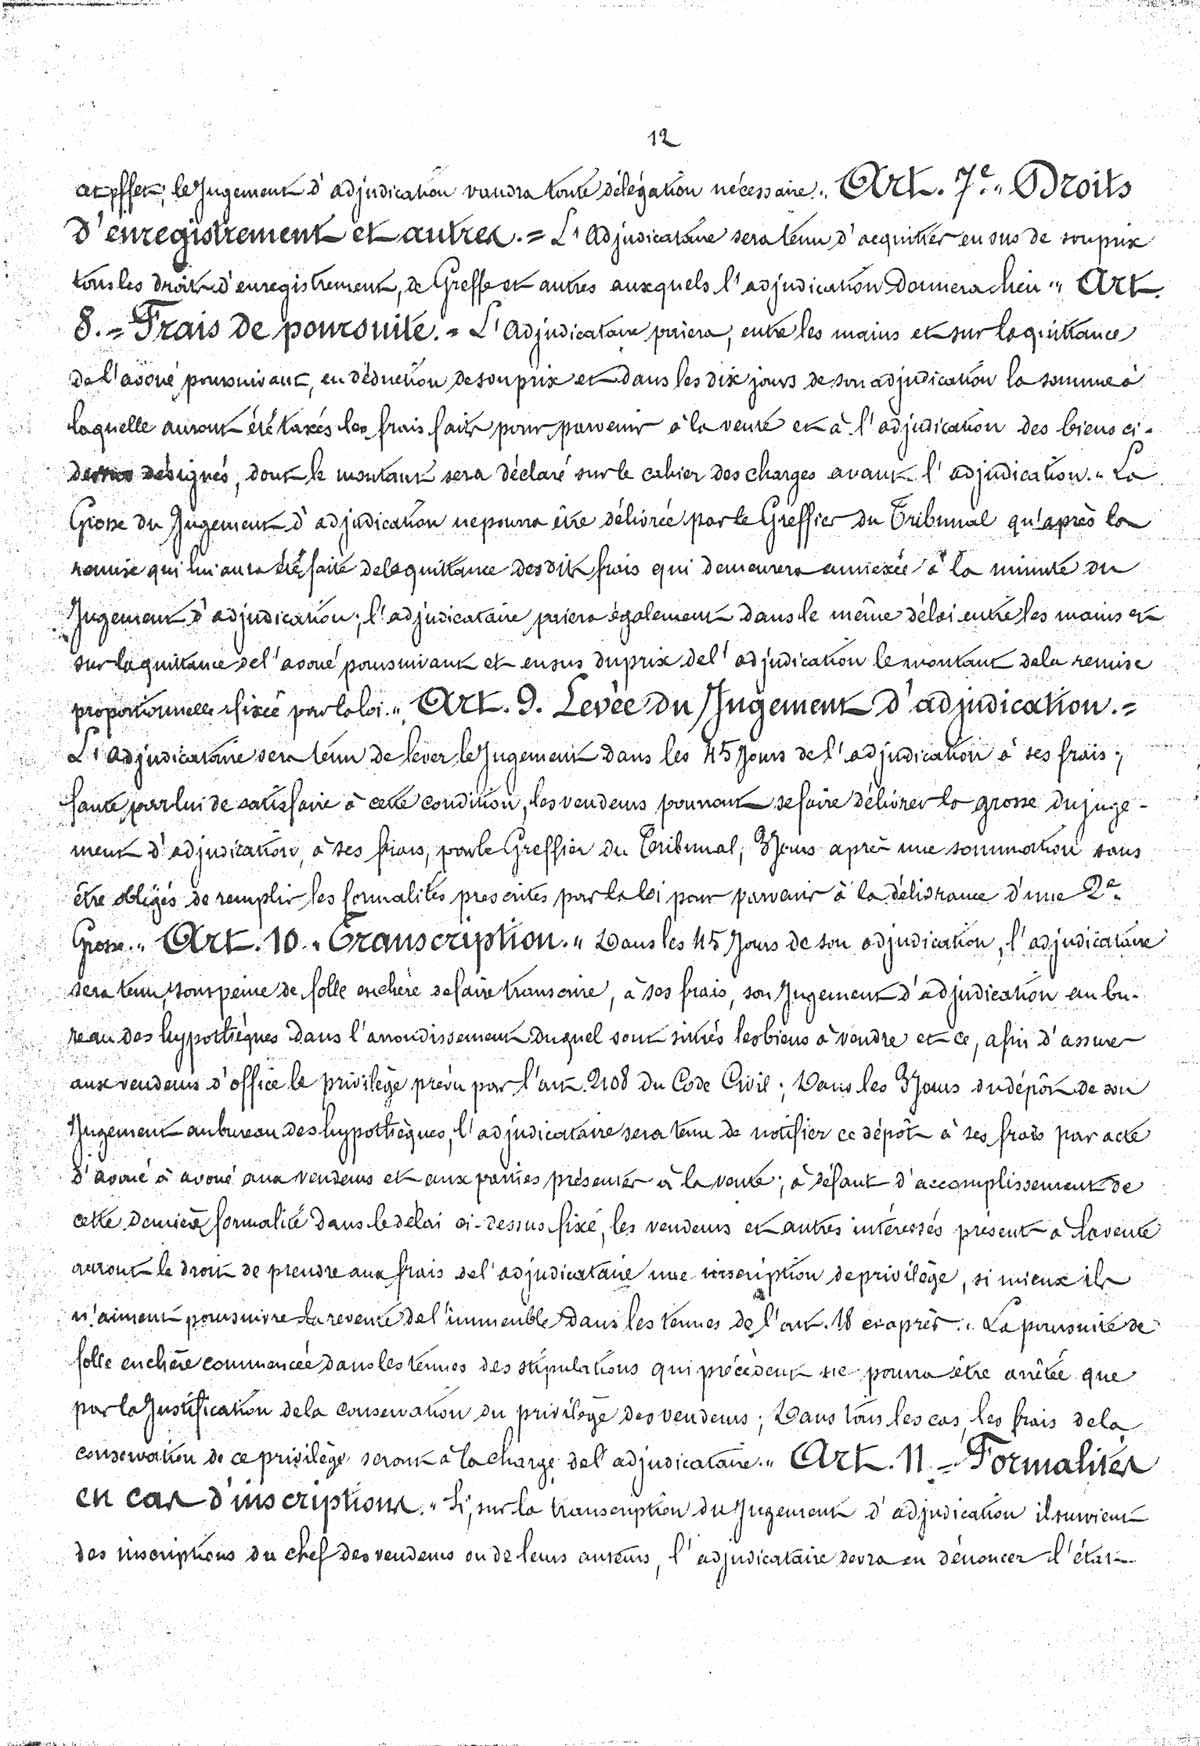 12
cet effet; le Jugement d'adjudication vaudra toute délégation nécessaire." Art. 7e." Droits
d'enregistrement et autres. = L'Adjudicataire sera tenu d'acquitter en sus de son prix
tous les droits d'enregistrement, de Greffe et autres auxquels l'adjudication donnera lieu." Art.
8. = Frais de poursuite. = L'Adjudicataire paiera, entre les mains et sur la quittance
de l'avoué poursuivant, en déduction de son prix et dans les dix jours de son adjudication la somme à
laquelle auront été taxés les frais faits pour parvenir à la vente et à l'adjudication des biens ci-
dessus désignés, dont le montant sera déclaré sur le cahier des charges avant l'adjudication." La
Grosse du Jugement d'adjudication ne pourra être délivrée par le Greffier du Tribunal qu'après la
remise qui lui aura été faite de la quittance desdits frais qui demeurera annexée à la minute du
Jugement d'adjudication; l'adjudicataire paiera également dans le même délai entre les mains et
sur la quittance de l'avoué poursuivant et en sus du prix de l'adjudication le montant de la remise
proportionnelle fixée par la loi." Art. 9. Levée du Jugement d'adjudication. =
L'Adjudicataire sera tenu de lever le Jugement dans les 45 Jours de l'adjudication à ses frais;
faute par lui de satisfaire à cette condition, les vendeurs pourront se faire délivrer la grosse du juge-
ment d'adjudication, à ses frais, par le Greffier du Tribunal, 3 Jours après une sommation sans
être obligés de remplir les formalités prescrites par la loi pour parvenir à la délivrance d'une 2e
Grosse." Art. 10." Transcription." Dans les 45 Jours de son adjudication, l'adjudicataire
sera tenu, sous peine de folle enchère de faire transcrire, à ses frais, son Jugement d'adjudication au bu-
reau des hypothèques dans l'arrondissement duquel sont situés les biens à vendre et ce, afin d'assurer
aux vendeurs d'office le privilège prévu par l'art. 2108 du Code Civil; Dans les 3 Jours du dépôt de son
Jugement au bureau des hypothèques, l'adjudicataire sera tenu de notifier ce dépôt à ses frais par acte
d'avoué à avoué aux vendeurs et aux parties présentes à la vente; à défaut d'accomplissement de
cette dernière formalité dans le délai ci-dessus fixé, les vendeurs et autres intéressés présent à la vente
auront le droit de prendre aux frais de l'adjudicataire une inscription de privilège, si mieux ils
n'aiment poursuivre la revente de l'immeuble dans les termes de l'art. 18 ci-après." La poursuite de
folle enchère commencée dans les termes des stipulations qui précèdent ne pourra être arrêtée que
par la Justification de la conservation du privilège des vendeurs; Dans tous les cas, les frais de la
conservation de ce privilège seront à la charge de l'adjudicataire." Art. 11. = Formalités
en cas d'inscriptions." Si, sur la transcription du Jugement d'adjudication il survient
des inscriptions du chef des vendeurs ou de leurs auteurs, l'adjudicataire devra en dénoncer l'état